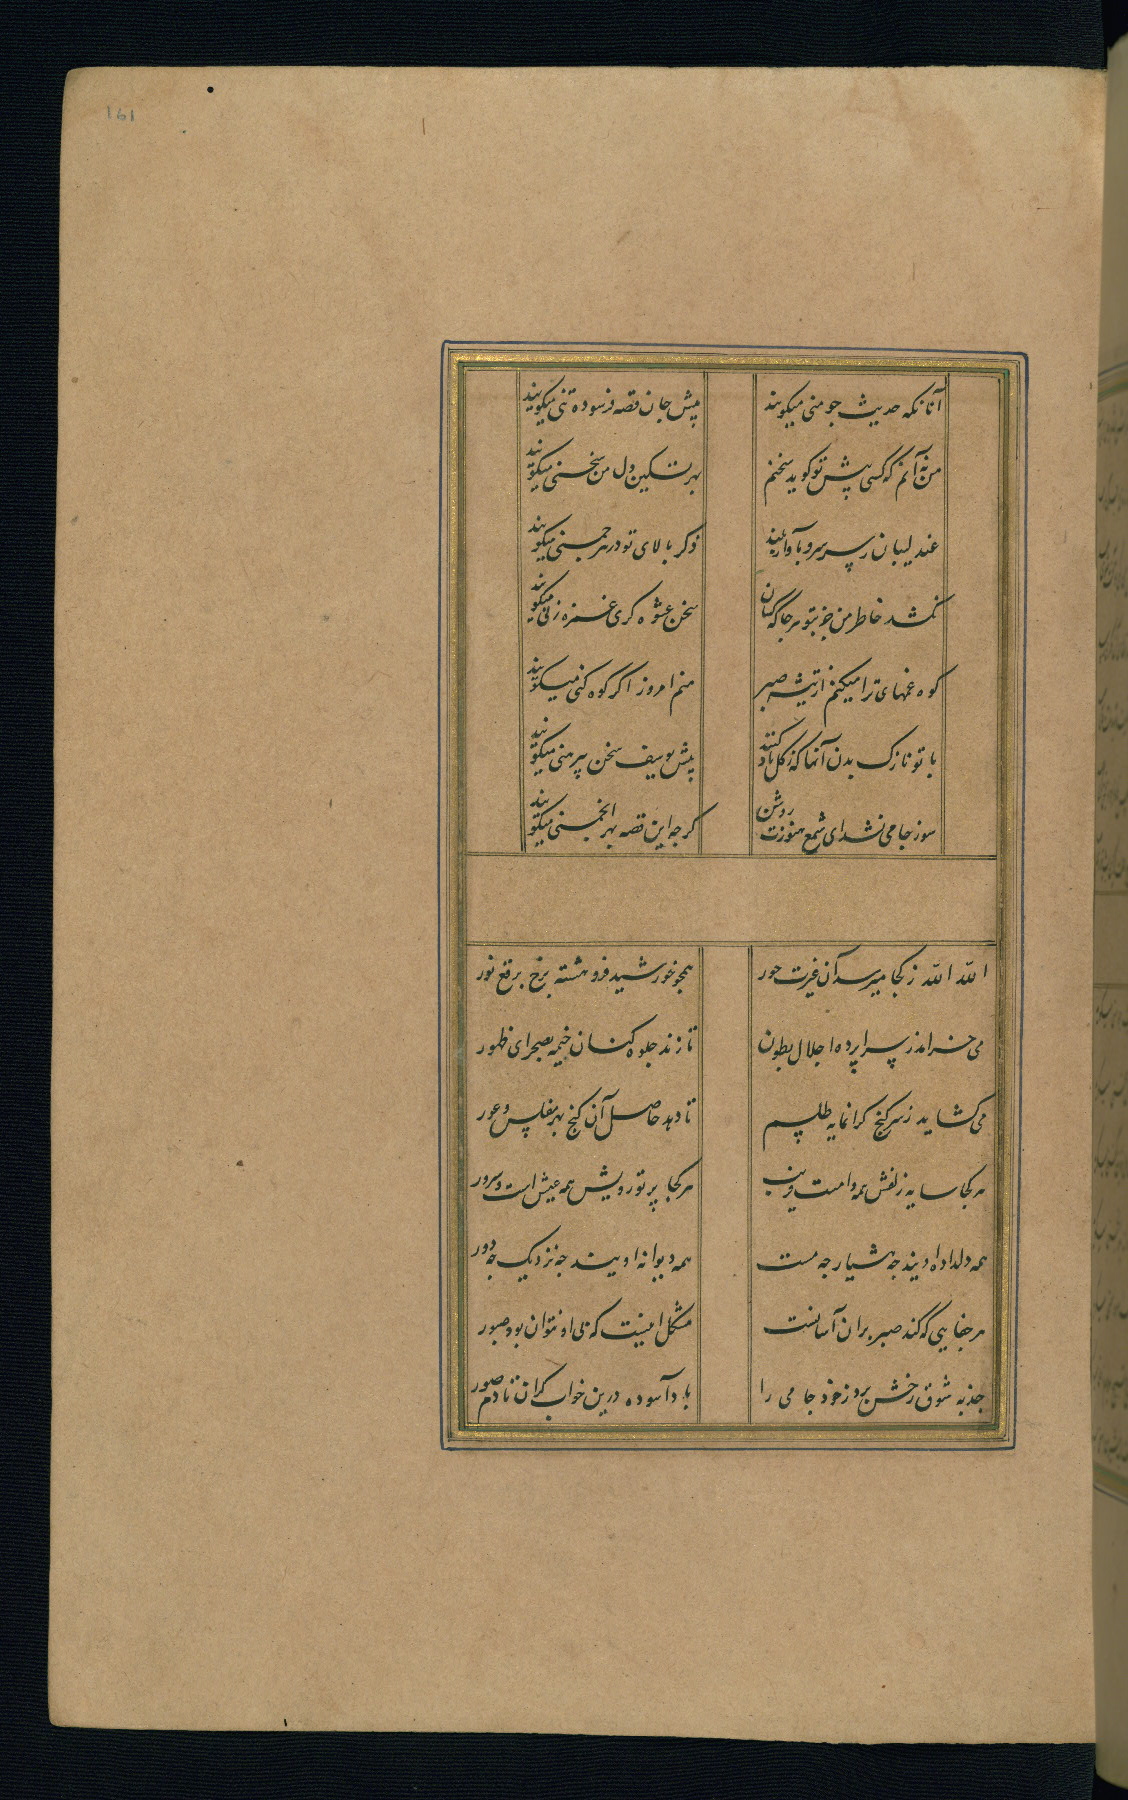 161
آنانکه حدیث جو منی میکویند پیش جان قصه فرسوده تنی میکویند
من نه آنم که کسی پیش تو کوید سخنم بهر تسکین دل من سخنی میکویند
عندلیبان ز سر سرو بآواز بلند ذکر بالای تو در هر جمنی میکویند
نکشد خاطر من جز بتو هر جا که کسان سخن عشوه کری غمزه زنی میکویند
کوه غمهای ترا میکنم از تیشه صبر منم امروز اکر کوه کنی میکویند
با تو نازک بدن آنها که ز کل یاد کنند پیش یوسف سخن پیرهنی میکویند
سوز جامی نشد ای شمع هنوزت روشن کرجه این قصه بهر انجمنی میکویند
الله الله ز کجا میرسد آن غیرت حور همجو خورشید فرو هشته برخ برقع نور
می خرامد ز سراپرده اجلال بطون تا زند جلوه کنان خیمه بصحرای ظهور
می کشاید ز سر کنج کرانمایه طلسم تا دهد حاصل آن کنج بهر مفلس و عور
هر کجا سایه زلفش همه وامست و فریب هر کجا پرتو رویش همه عیش است و سرور
همه دلداده اویند جه هشیار جه مست همه دیوانه اویند جه نزدیک جه دور
هر جفایی که کند صبر بران آسانست مشکل اینست که بی او نتوان بود صبور
جذبه شوق رخش برد ز خود جامی را باد آسوده درین خواب کران تا دم صور